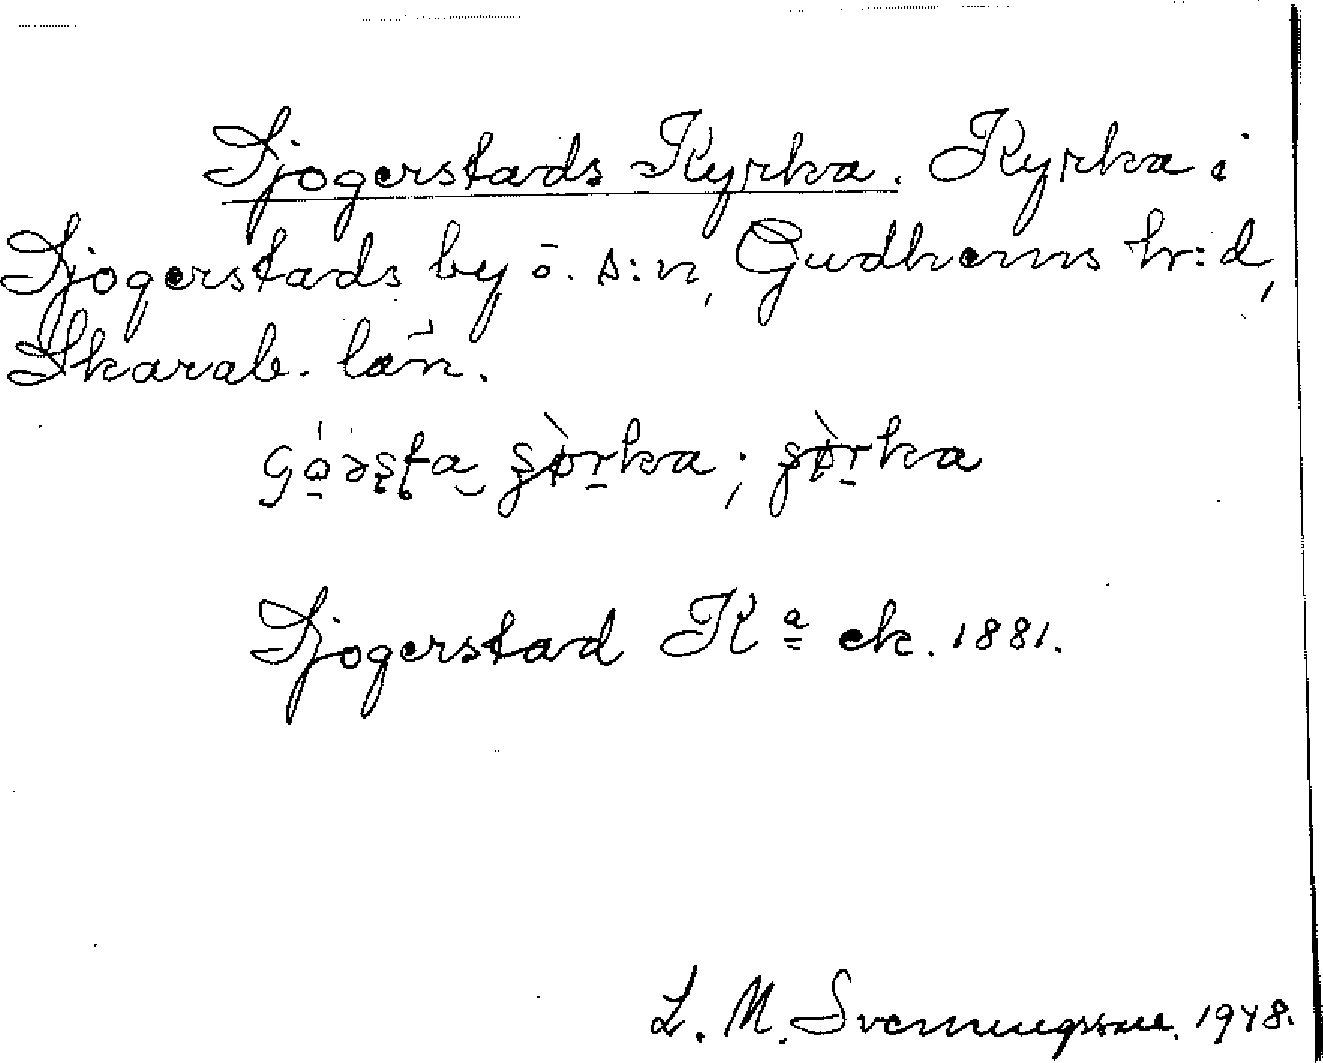 Sjogerstads Kyrka. Kyrka i
Sjogerstads by o. s:n, Gudhems h:d,
Skarab. län.
Sjogerstad Kª ek. 1881.
L. M. Svenningsson. 1948.